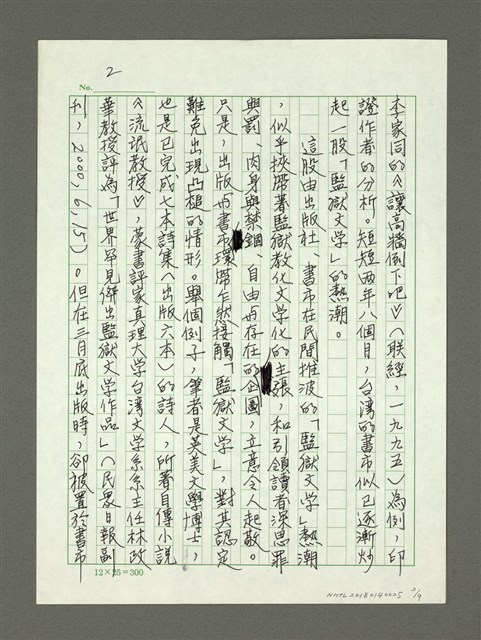 2
No.
李家同的《讓高牆倒下吧》(聯經,一九九五)為例,印
證作者的分析。短短兩年八個月,台灣的書市似已逐漸炒
起一股「監獄文學」的熱潮。
這股由出版社、書市在民間推波的「監獄文學」熱潮
,似乎挾帶著監獄教化文學化的主張,和引領讀者深思罪
與罰、肉身與禁錮、自由與存在的企圖,立意令人起敬。
只是,出版與書市環帶乍狀接觸「監獄文學」,對其認定
難免出現凸槌的情形。舉個例子,筆者是英美文學博士,
也是已完成七本詩集(出版六本)的詩人,所著自傳小說
《流氓教授》,蒙書評家真理大學台灣文學系系主任林政
華教授評為「世界罕見傑出監獄文學作品」(民眾日報副
刊,2000,6,15)。但在三月底出版時,卻被置於書市
12×25=300
NMTL20180140025 2/9